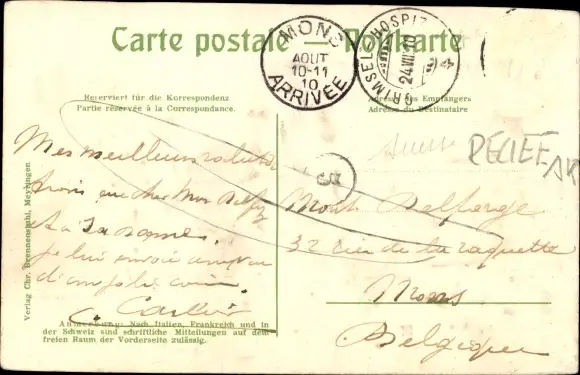 Carte postale — Postkarte
MONS
AOUT
10-11
10
ARRIVÉE
GRIMSEL HOSPIZ
24 VII 10
Reserviert für die Korrespondenz
Partie réservée à la Correspondance.
Adresse des Empfängers
Adresse du Destinataire
RELIEF
Mes meilleurs saluts
cher Mons Delf
et à sa dame.
je lui envoie
d'un joli coin.
Mons Delferge
32 rue de la raquette
Mons
Belgique
Verlag Chr. Brennenstuhl, Meyringen
Anmerkung: Nach Italien, Frankreich und in
der Schweiz sind schriftliche Mitteilungen auf dem
freien Raum der Vorderseite zulässig.